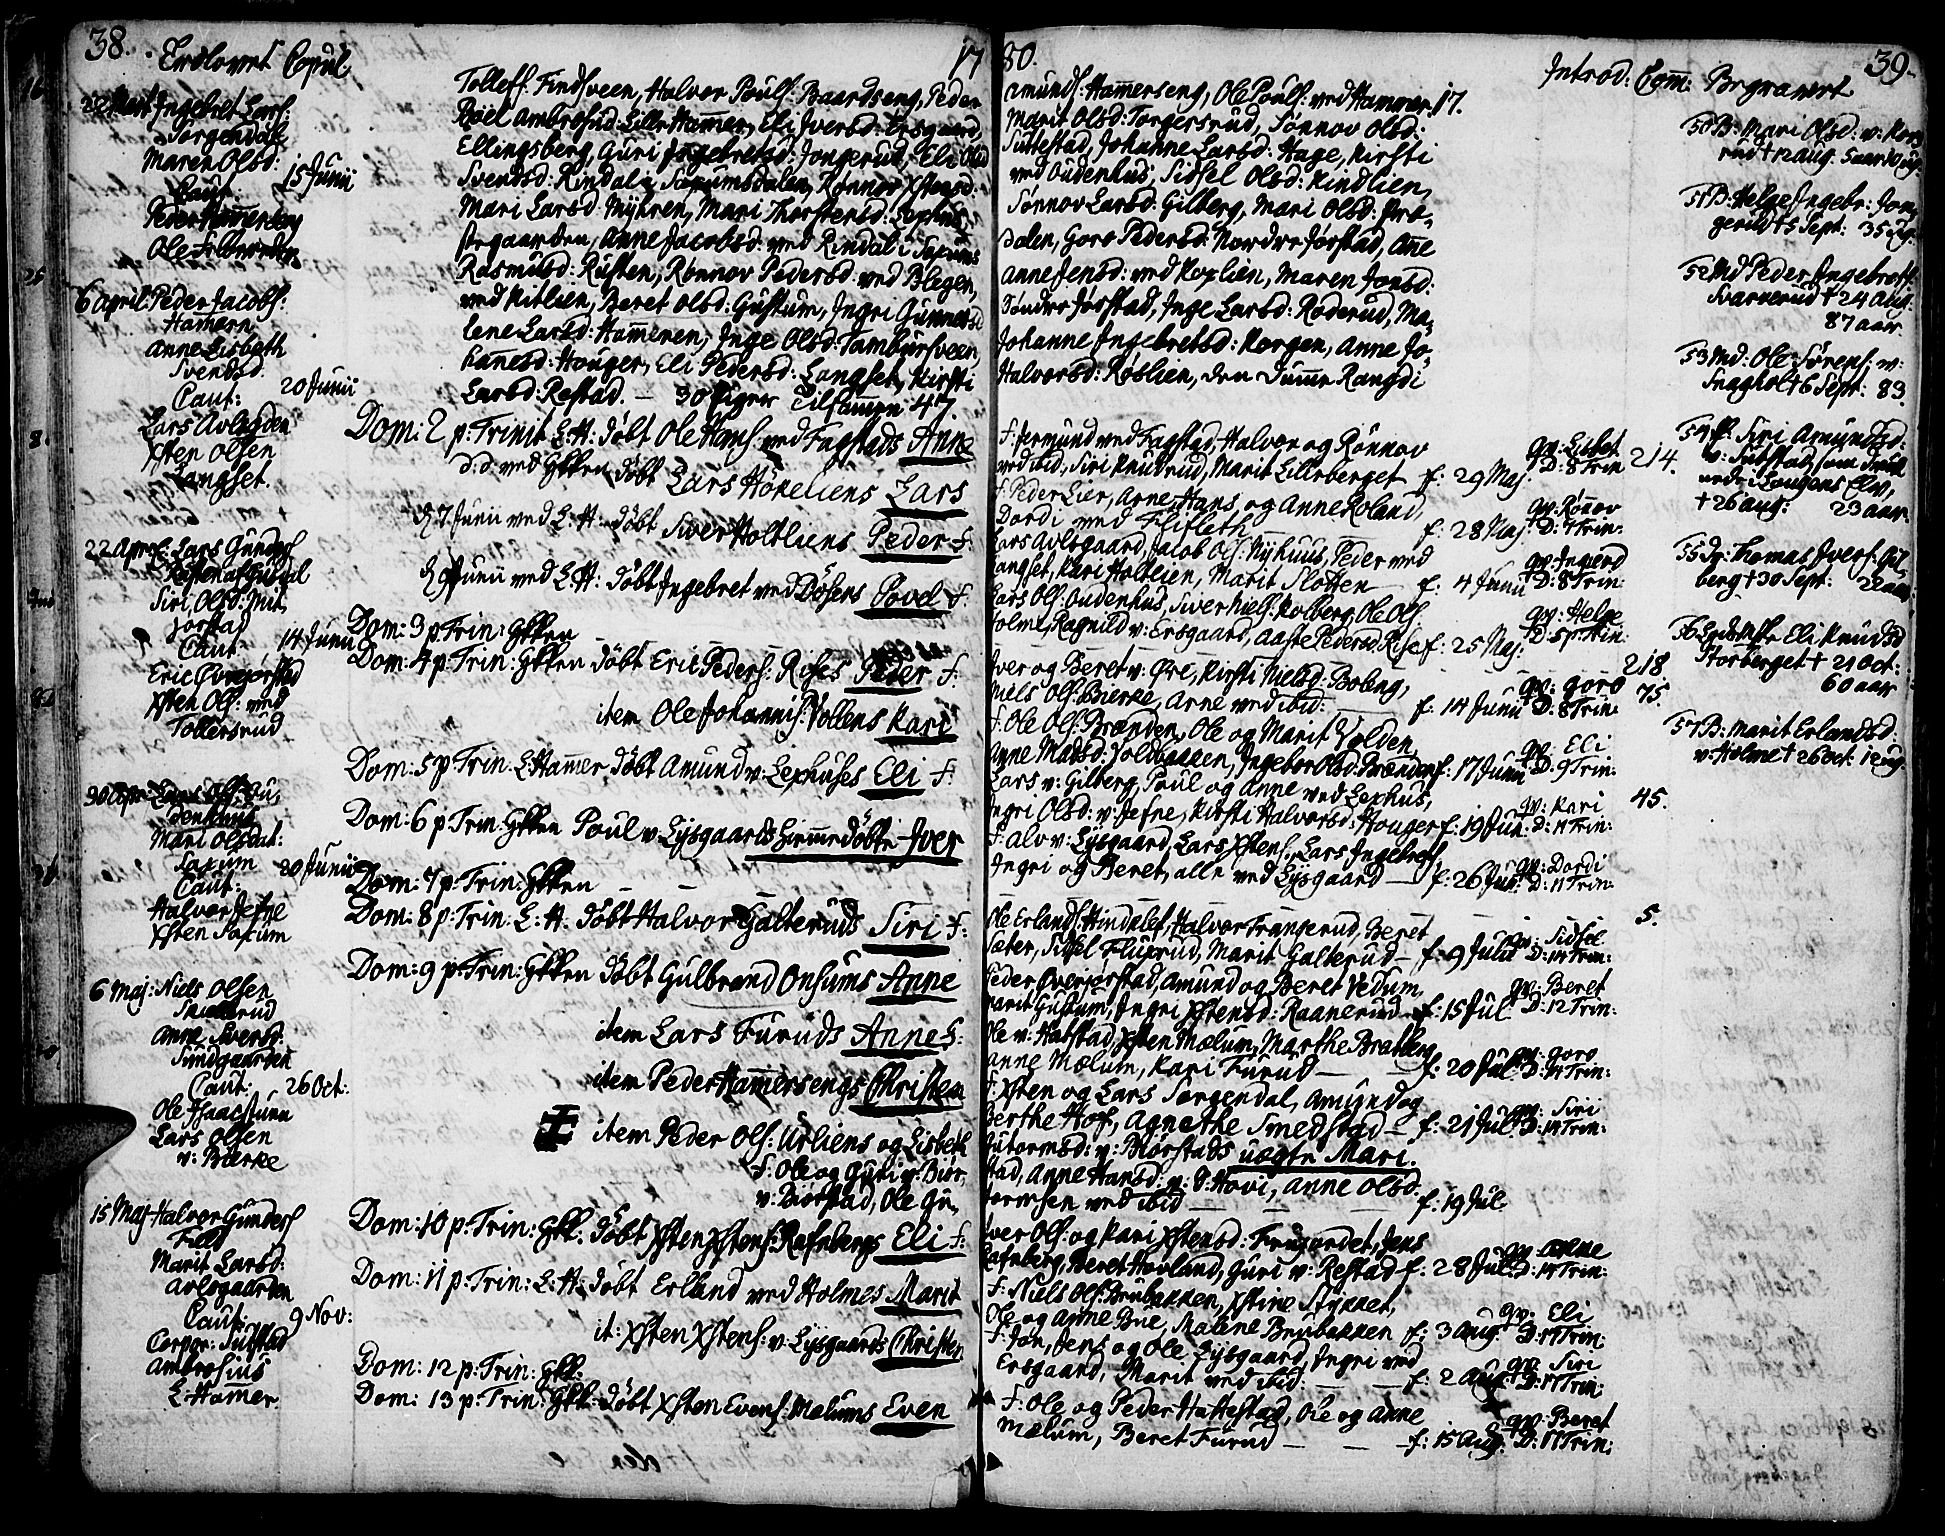 38. Trolovet Copul: 17
22 Mart Ingebret Lars:
Sorgendal
Maren Olsd:
Caut: 15 Junii
Peder Hammerseng
6 April: Peder Jacobs:
Hamern
Anne Lisbeth
Svendsd.
Caut: 20 Junii
Lars Avlsgden
Xsten Olsen
Langset.
22 Apr: Lars Gunders
Siri Olsd: Mit
jorstad
Caut 14 Junii
Eric Overjorstad
Xsten Ols: ved
Tollersrud
30 Apr: Lars Ols: Ou
denhuus
Mari Olsdat:
Saxum
Caut: 20 Junii
Halvor Jefne
Xsten Saxum
6 Maj: Niels Olsen
Anne Iversd:
Sundgaarden
Caut: 26 Oct:
Ole Isaacstuen
Lars Olsen
v: Bierke
15 Maj Halvor Gunders
Marit Larsd:
Avlsgaarden
Caut: 9 Nov:
Corpor: Sulstad
Ambrosius
L Hamer
Tollefs: Findsveen, Halvor Pouls: Baardseng, Peder
Böel Ambrosud Lille Hamer, Eli Iversd: Ersgaard,
Ellingsberg, Guri Ingebretsd: Jongerud, Eli Olsd
Svendsd: Rindal i Saxumsdalen, Rönnov Xstensd:
Mari Larsd: Myhren, Mari Thorstensd: Saxums
prgaarden, Anne Jacobsd: ved Rindal i Saxums
Rasmusd: Rusten, Rönnov Pedersd: ved Blegen,
ved Kitlien, Beret Olsd: Gustum, Ingri Gunnersd
lene Larsd: Hammeren, Inge Olsd: Tambursveen,
hanesd: Houger, Eli Pedersd: Langset, Kirsti
Larsd: Restad. — 30 Piger Tilsamen 47.
Dom: 2 p: Trinit L: H: döbt Ole Hans: ved Fagstads Anne
d: d: ved Gkken döbt Lars Hökeliens Lars
d 7 Junii ved L: H: döbt Siver Holtliens Peder f:
d 9 Junii ved L: H: döbt Ingebret ved Dösens Povel f.
Dom: 3 p: Trin: Gkken
Dom: 4 p: Trin: Gkken döbt Eric Peders: Roses Peder f:
item Ole Johannis: Vollens Kari
Dom: 5 p Trin L: Hamer döbt Amund v: Lexhuses Eli f:
Dom: 6 p: Trin: Gkken Poul v: Lysgaards hiemedöbte Iver
Dom: 7 p: Trin: Gkken
Dom: 8 p: Trin: L: H: döbt Halvor Galteruds Siri f:
Dom: 9 p: Trin: Gkken döbt Gulbrand Onsums Anne
item Lars Furuds Anne f:
item Peder Hammersengs Christen
item Peder Ols: Urliens og Lisbeth
f: Ole og Guri v: Biör
v: Biorstad, Ole Gu
Dom: 10 p: Trin: Gkk: döbt Xsten Xstens: Rafnbergs Eli f:
Dom: 11 p: Trin: L: H: döbt Erland ved Holmes Marit
it: Xsten Xstens: v: Lysgaards Christen
Dom: 12 p: Trin: Gkk:
Dom: 13 p: Trin: Gkk: döbt Xsten Evens: Mælums Even
80. Introd: Com: Begravet 39.
Amunds: Hamerseng, Ole Pouls: ved Hammer 17.
Marit Olsd: Torgersrud, Sönnov Olsd:
Suttestad, Johanne Larsd: Hage, Kirsti
ved Oudenhus, Sidsel Olsd: Rindlien,
Sönnov Larsd: Gilberg, Mari Olsd: Bro
dalen, Goro Pedersd: Nordre Jörstad, Ane
Anne Jensd: ved Roxlien, Maren Jonsd:
Söndre Jörstad, Inge Larsd: Roderud, Ma
Johanne Ingebretsd: Korgen, Anne Jo
Halvorsd: Röslien, den Dumme Rangdi
f: Jermund ved Fagstad, Halvor og Rönnov
ved ibid, Siri Knutsrud, Marit Lilleberget f: 29 Maj. gv: Lisbet D: 8 Trin 214.
f: Peder Lier, Arne, Hans og Anne Roland,
Dordi ved Flifleth f: 28 Maj. gv: Rönov D: 7 Trin:
Lars Avlsgaard, Jacob Ols: Nyhuus, Peder ved
Langset, Kari Holtlien, Marit Slotten f: 4 Junii gv: Ingerd D: 8 Trin:
Lars Ols: Oudenhus, Siver Niels: Kolberg, Ole Ols
Holme, Ragnild v: Ersgaard, Aaste Pedersd Rise f: 25 Maj: gv: Helge D: 5 p Trin:
Iver og Beret v: Öre, Kirsti Nielsd: Boleng, 218.
Niels Ols: Bierke, Arne ved ibid: f: 14 Junii gv: Goro D: 8 Trin: 75.
f: Ole Ols: Brænden, Ole og Marit Volden,
Anne Madsd: Joldbakken, Ingebor Olsd: Brænden f: 17 Junii gv: Eli D: 9 Trin:
Lars v: Gilberg, Poul og Anne ved Lexhus,
Ingri Olsd: v: Jefne, Kirsti Halvorsd: Houger f: 19 Jun: gv: Kari D: 11 Trin: 45.
f: Alv v: Lysgaard, Lars Xstens: Lars Ingebrets,
Ingri og Beret, alle ved Lysgaard f: 26 Jun: gv: Dordi D: 11 Trin:
Ole Erlands: Hindklef, Halvor Transerud, Beret 5.
Sæter, Sidsel Fluxrud, Marit Galterud f: 9 Julii gv: Sidsel D: 14 Trin:
Peder Överjörstad, Amund og Beret Vedum,
Marit Gustum, Ingri Xstensd: Raanerud f: 15 Jul gv: Beret D: 12 Trin:
Ole v: Hatstad, Xsten Mælum, Marthe Bratten,
Anne Mælum, Kari Furud f: 20 Jul: gv: Goro D: 14 Trin:
f: Xsten og Lars Sorgendal, Amund og
Berthe Hof, Agnethe Smedstad f: 21 Jul: gv: Siri D: 14 Trin:
Gutormsd: v: Biörstads uægte Mari.
stad, Anne Hansd: v: S: Hovi, Anne Olsd:
tormsen ved ibid f: 19 Jul.
Iver Ols: og Kari Xstensd: Frugardet, Jens
Rafnberg, Beret Hovland, Guri v: Restad f: 28 Jul: gv: Anne D: 14 Trin:
f: Niels Ols: Brubakken, Xstine Stykket,
Ole og Anne Bue, Malene Brubakken f: 3 Aug: gv: Eli D: 17 Trin
f: Jon, Jens og Ole Lysgaard, Ingri ved
Ersgaard, Marit ved ibid: f: 2 Aug: gv: Siri D: 17 Trin:
f: Ole og Peder Hattestad, Ole og Anne
Mælum, Beret Furud f: 15 Aug: gv: Beret D: 17 Trin:
50 B: Mari Olsd: v: Korg
rud + 12 Aug: 5 aar 10 ug:
51 B: Helge Ingebr: Jon
gerud + 5 Sept: 35 ug:
52 Md Peder Ingebrets:
Svarverud + 24 Aug:
87 aar
53 Md: Ole Sörens: v:
Snaghol + 6 Sept: 83.
54 P: Siri Amundsd:
v: Sulstad, som druk
nede i Lougens Elv,
+ 26 Aug: 23 aar.
55 Dr: Thomas Ivers: Gil
berg + 30 Sept: 22 aar
56 Eli Knudsd
Storberget + 21 Oct:
60 aar
57 B: Marit Erlandsd:
v: Holme + 26 Oct: 12 ug: